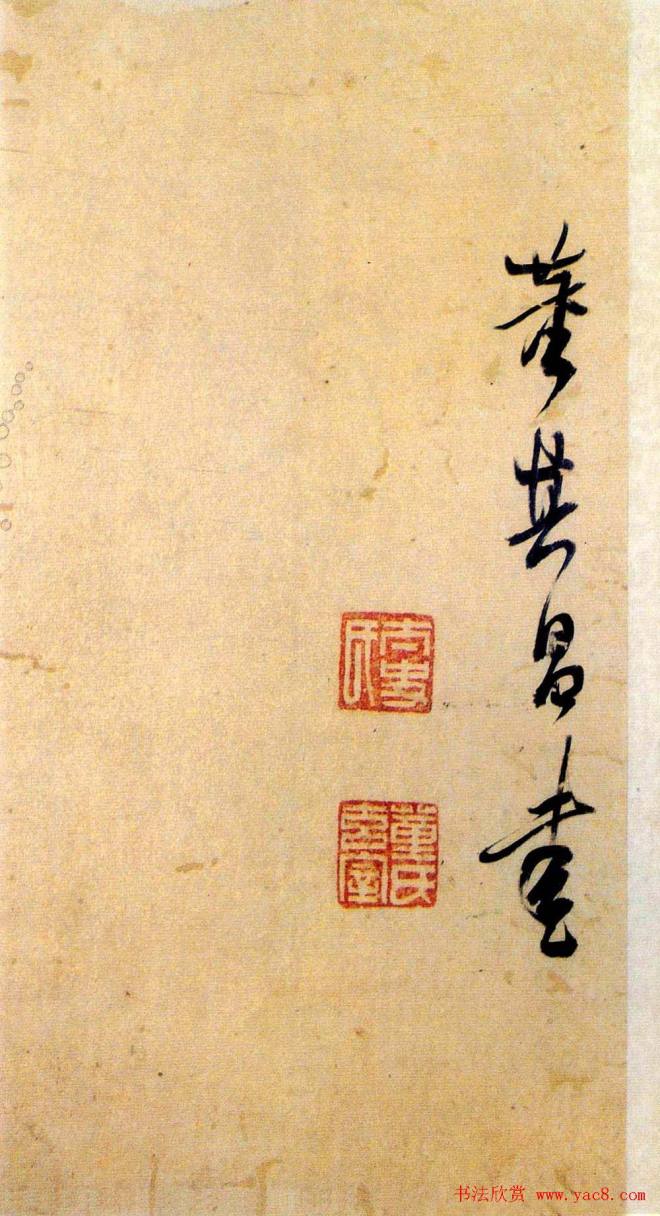 董其昌書
太史氏
董氏玄宰
书法欣赏 www.yac8.com